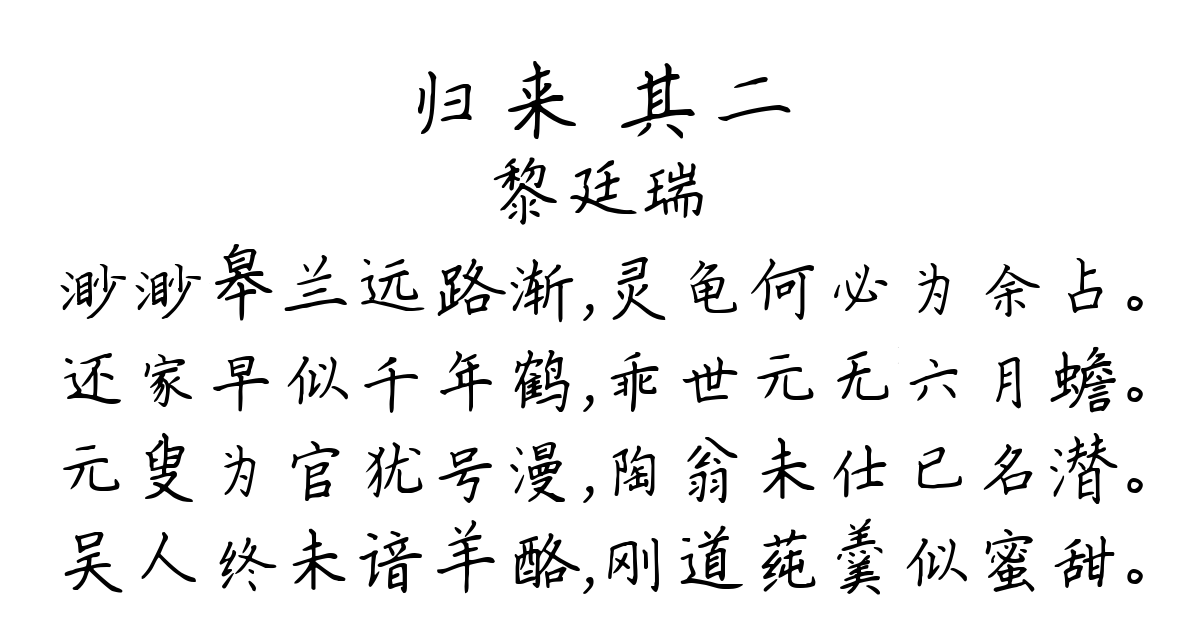 归来 其二
黎廷瑞
渺渺皋兰远路渐,灵龟何必为余占。
还家早似千年鹤,乖世元无六月蟾。
元叟为官犹号漫,陶翁未仕已名潜。
吴人终未谙羊酪,刚道莼羹似蜜甜。